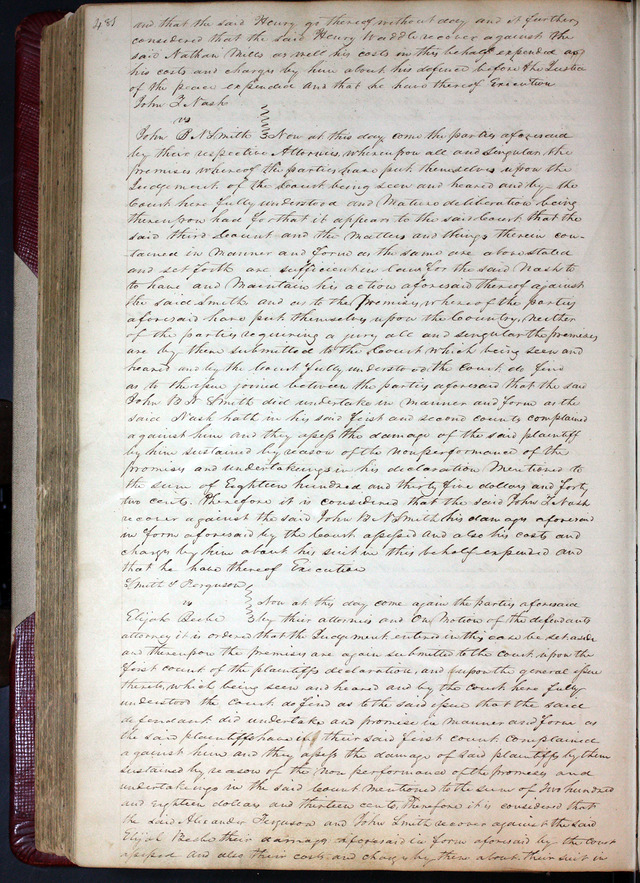 and that the said Henry go thereof without day and it further
considered that the said Henry Waddle recover against the
said Nathan Mills as well his costs in this behalf expended as
his costs and charges by him about his defence before the Justice
of the peace expended and that he have thereof Execution
John T Nash
vs
John B N Smith Now at this day come the parties aforesaid
by their respective Attornies, whereupon all and singular the
premises whereof the parties have put themselves upon the
Judgement of the Court being seen and heared and by the
Court here fully understood and Mature deliberation being
thereupon had for that it appears to the said Court that the
said third Count and the Matters and things therein con-
tained in Manner and form as the same are above stated
and set forth are sufficient in Law for the said Nash to
to have and Maintain his action aforesaid thereof against
the said Smith and as to the Premises, whereof the parties
aforesaid have put themselves upon the Country, Neither
of the parties requiring a jury all and singular the premises
are by them submitted to the Court which being seen and
heared and by the Court fully understood the Court do find
as to the issue joined between the parties aforesaid that the said
John B N Smith did undertake in Manner and form as the
said Nash hath in his said first and second counts complained
against him and they assess the damage of the said plaintiff
by him sustained by reason of the nonperformance of the
promises and undertakings in his declaration Mentioned to
the sum of Eighteen hundred and thirty five dollars and forty
two cents. Therefore it is considered that the said John T Nash
recover against the said John B N Smith his damages aforesaid
in form aforesaid by the Court assessed and also his costs and
charges by him about his suit in this behalf expended and
that he have thereof Execution
Smith & Ferguson
vs Now at this day come again the parties aforesaid
Elijah Beebe by their attornies and On Motion of the defendants
attorney it is ordered that the Judgement entered in this case be set aside
and thereupon the premises are again submitted to the court, upon the
first count of the plaintiffs declaration, and upon the general issue
thereto, which being seen and heared and by the court here fully
understood the Court do find as to the said issue that the said
defendant did undertake and promise in manner and form as
the said plaintiffs have in their said first count complained
against him and they assess the damage of said plaintiffs by them
sustained by reason of the Non performance of the promises and
undertakings in the said Count mentioned to the sum of two hundred
and eighteen dollars and thirteen cents, Therefore it is considered that
the said Alexander Ferguson and John Smith recover against the said
Elijah Beebe their damages aforesaid in form aforesaid by the Court
assessed and also their costs and charges by them about their suit in